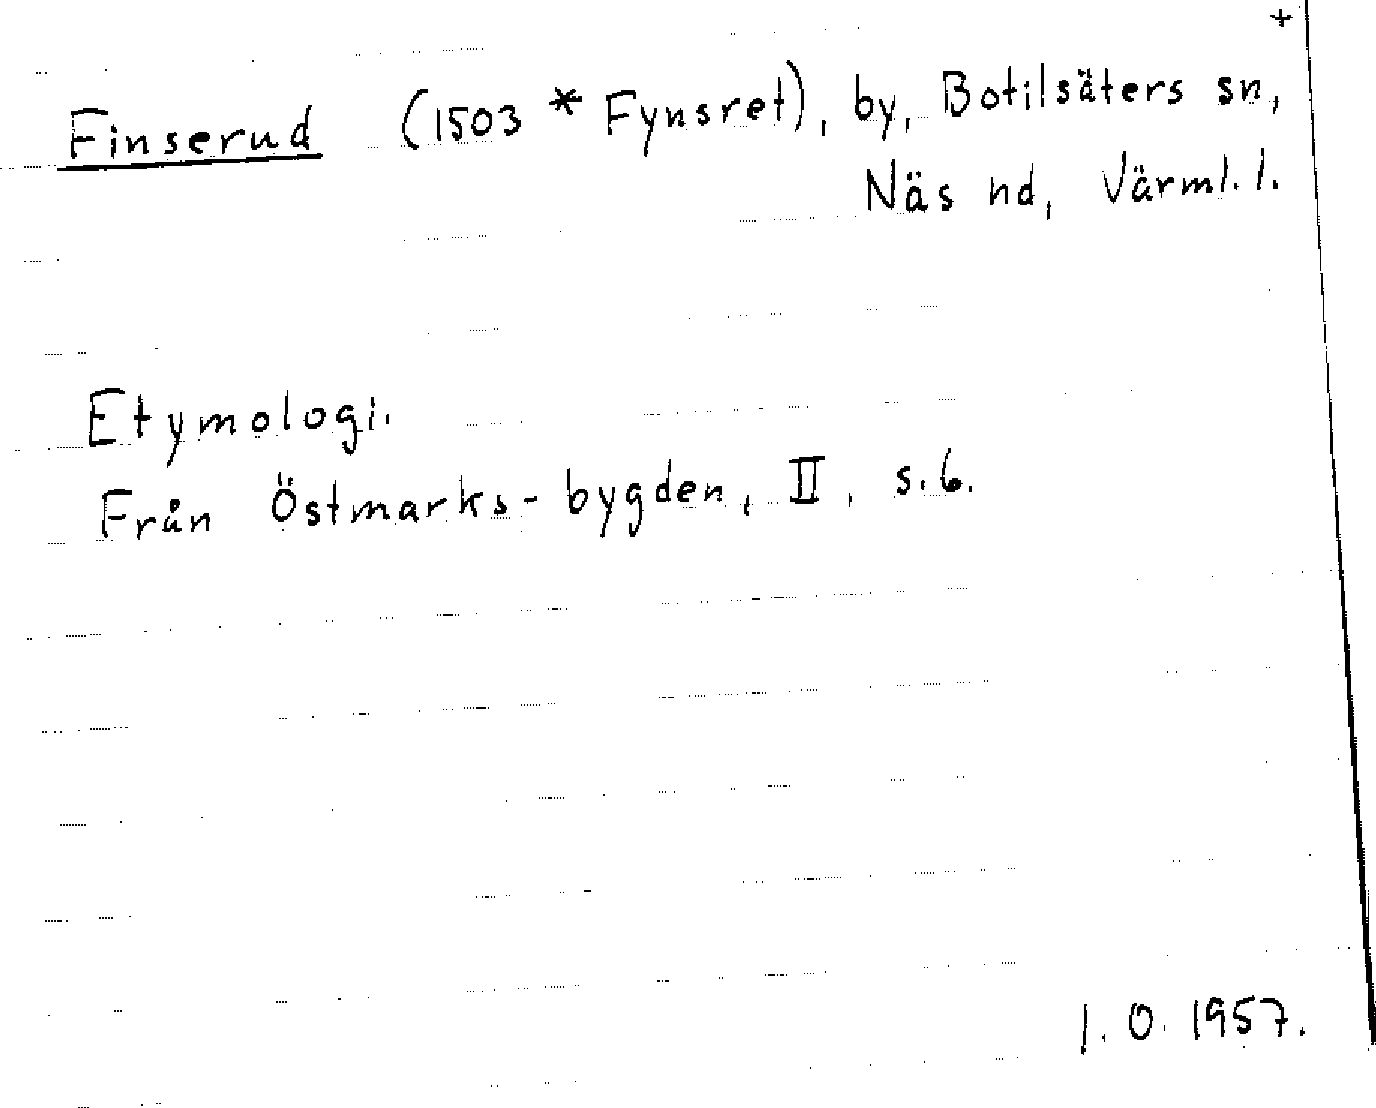 +
Finserud (1503 * Fynsret), by, Botilsäters sn,
Näs hd, Värml. l.
Etymologi.
Från Östmarks-bygden, II, s. 6.
I. O. 1957.